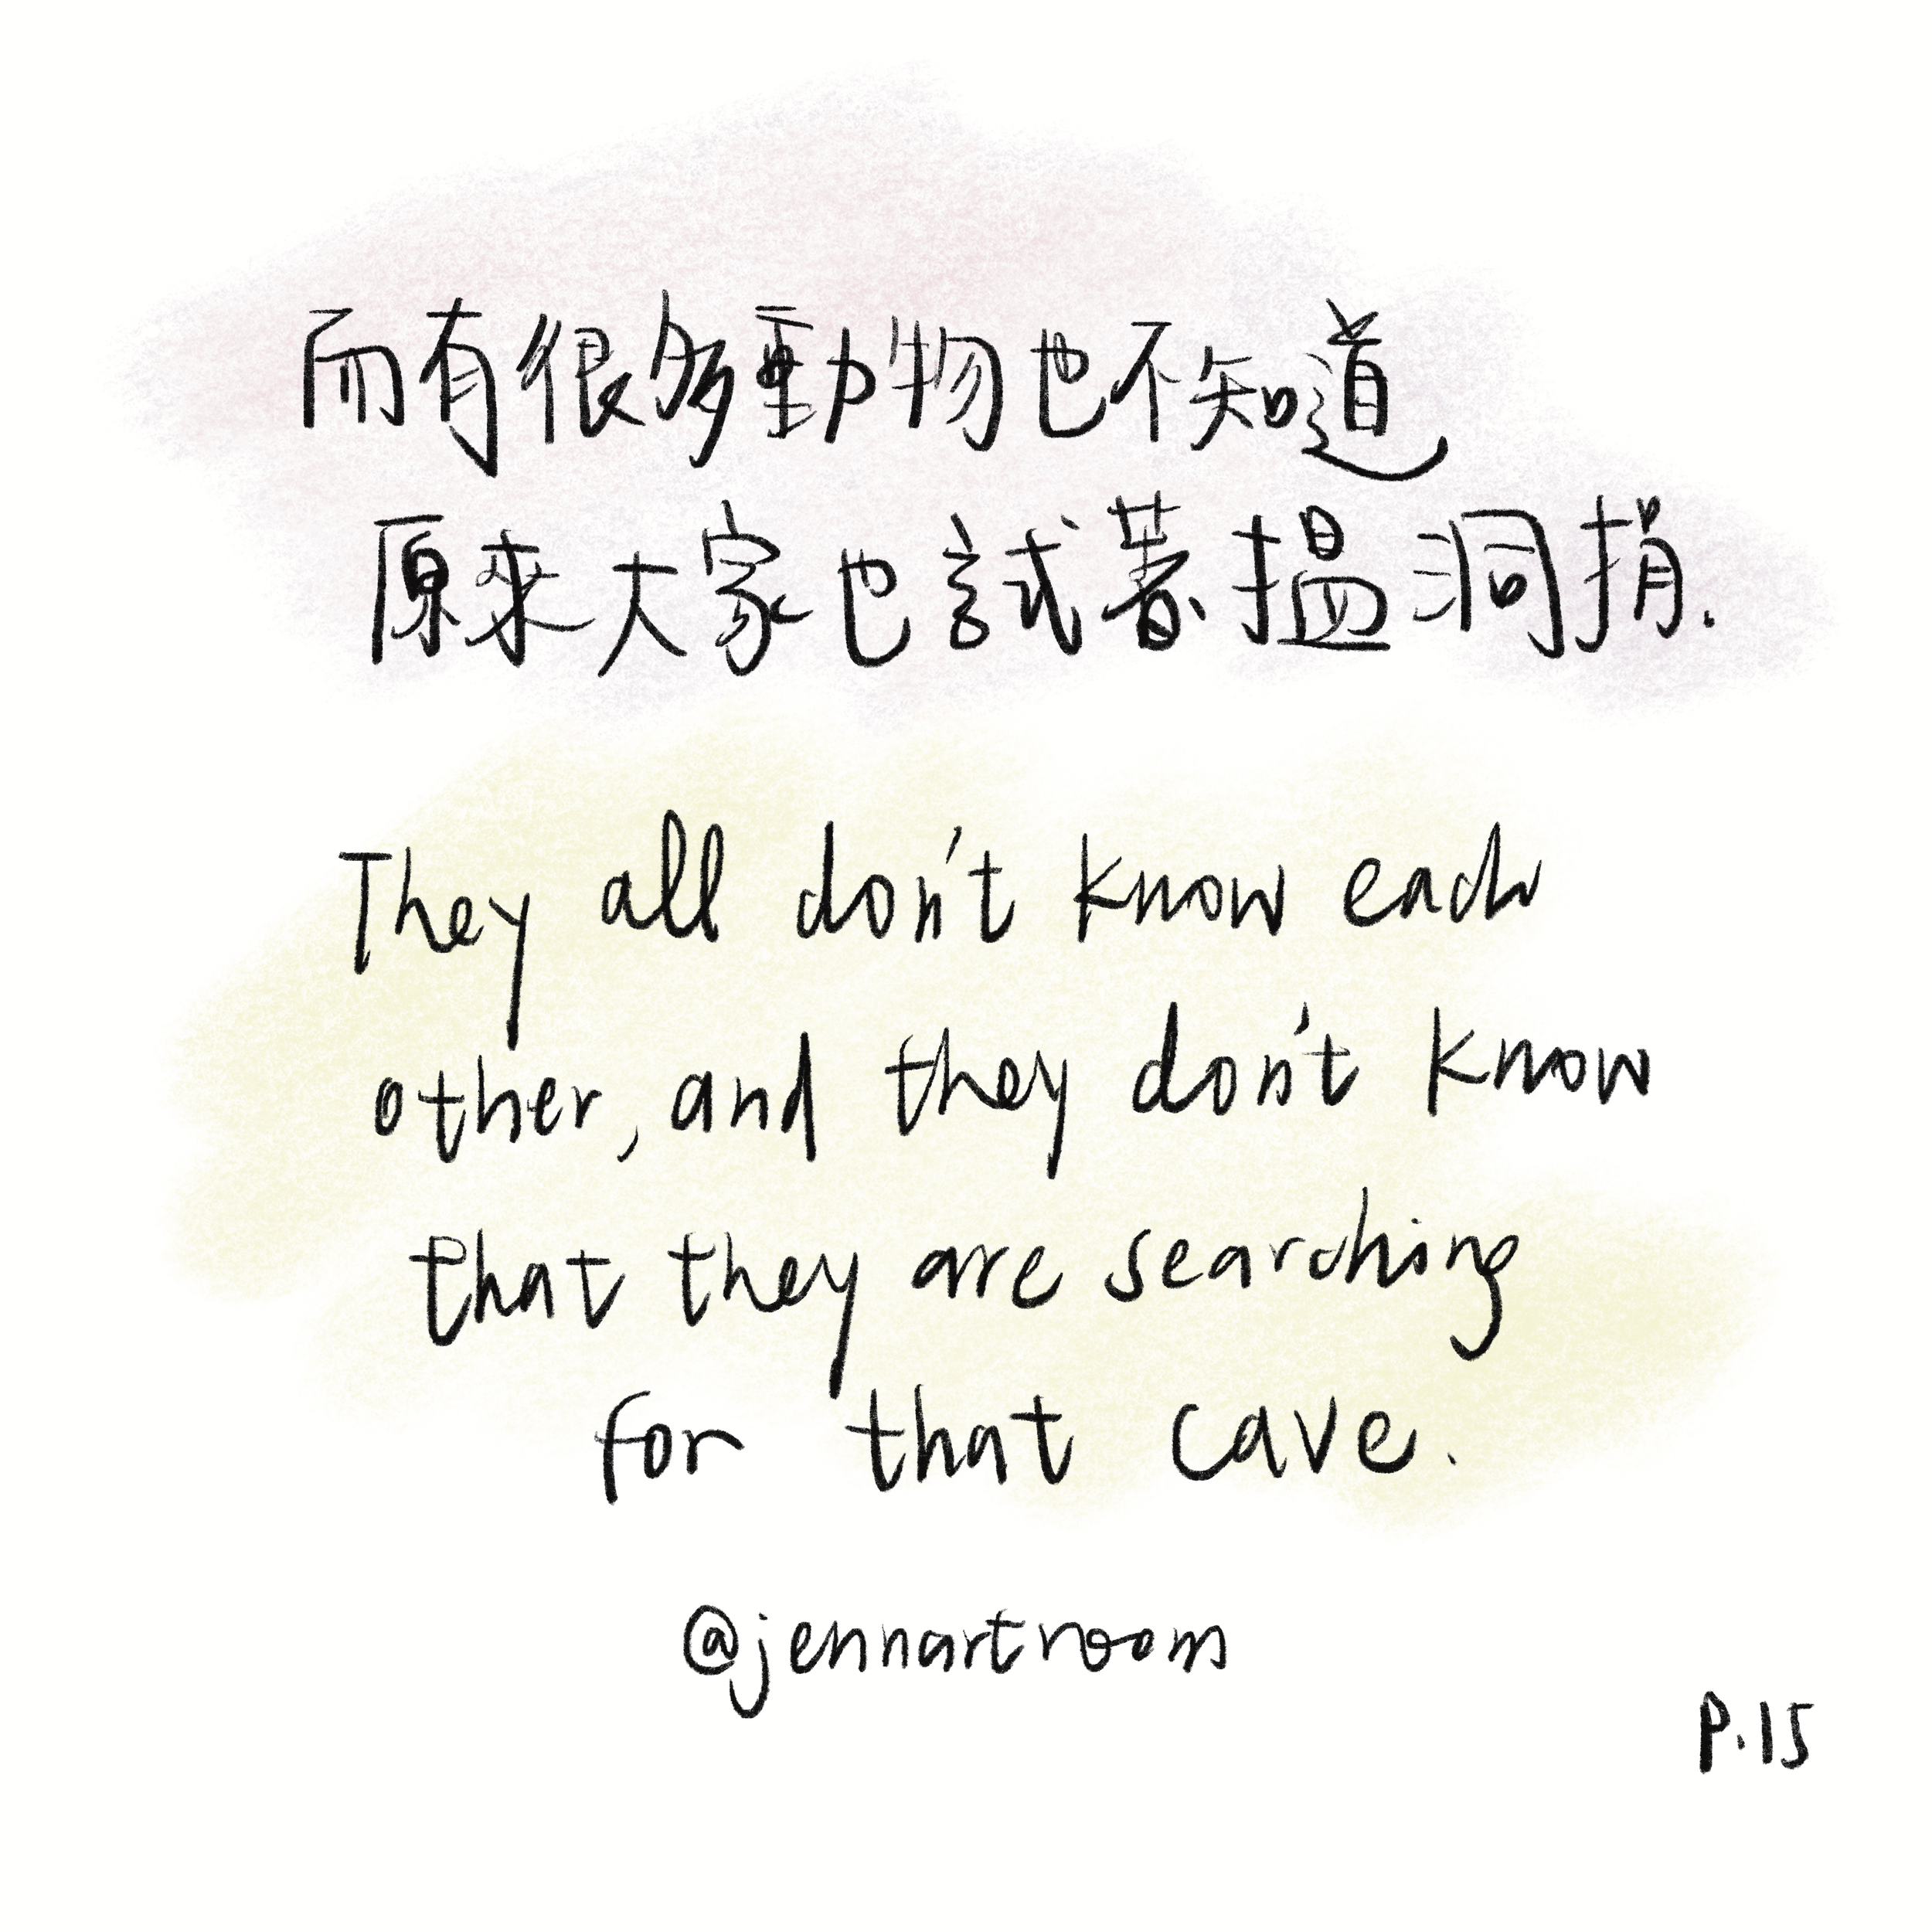 而有很多動物也不知道
原來大家也試著搵洞捐.
They all don't know each
other, and they don't know
that they are searching
for that cave.
@jennartroom
P.15